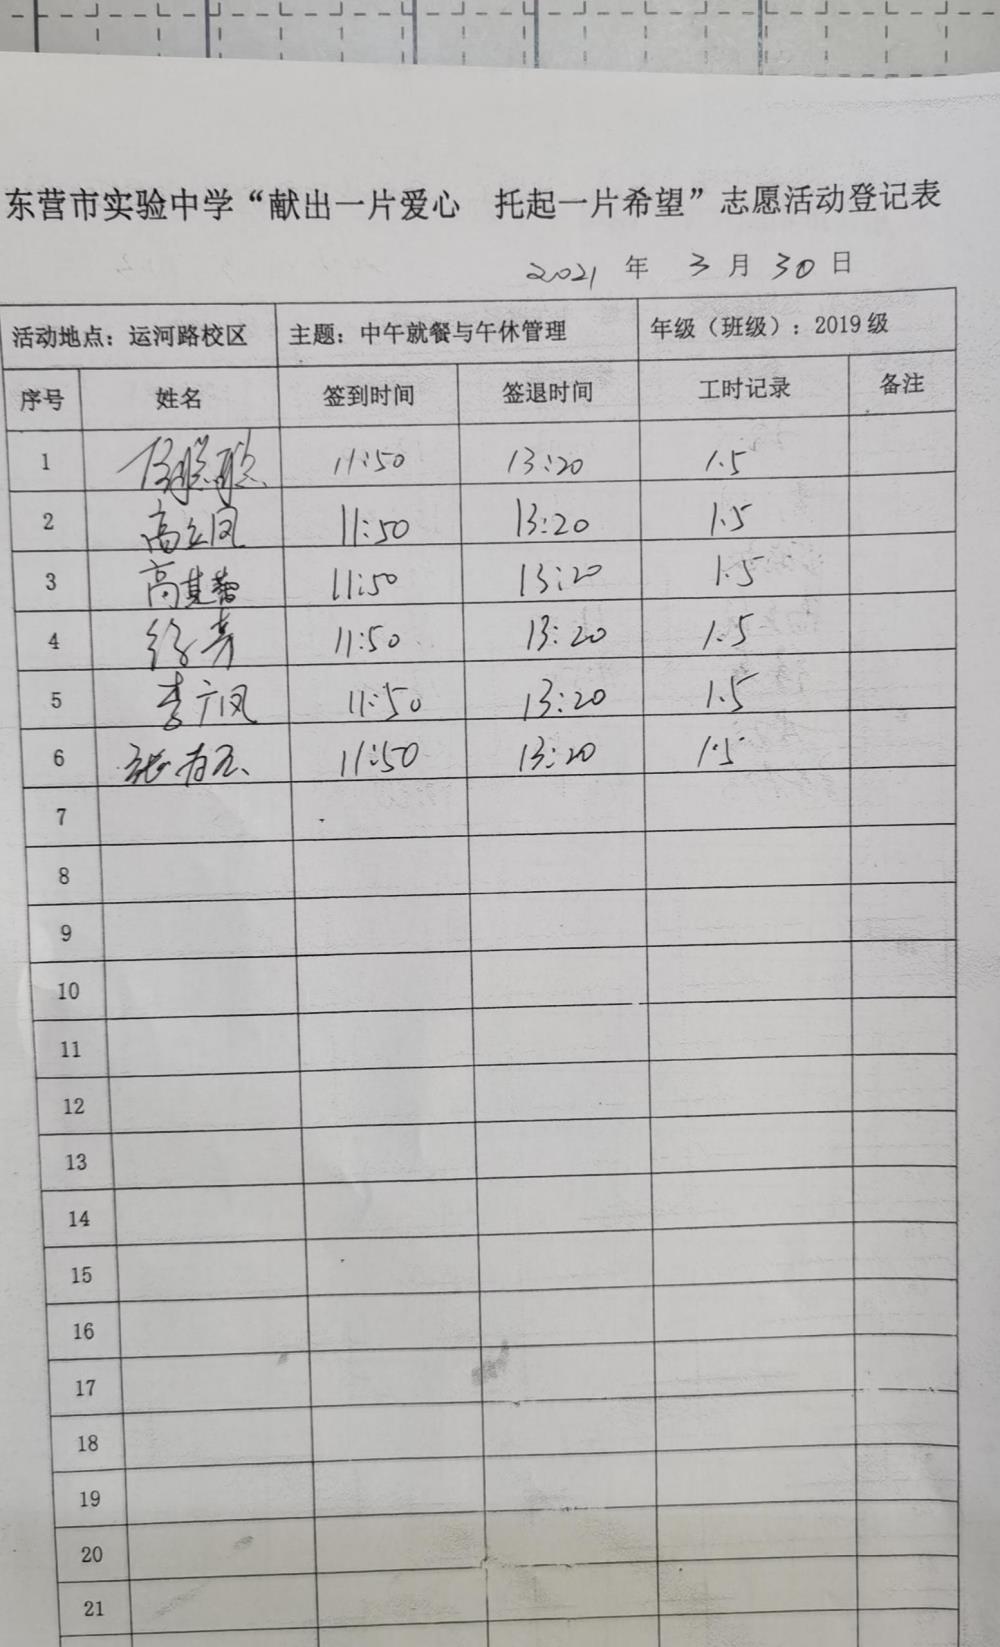 东营市实验中学“献出一片爱心 托起一片希望”志愿活动登记表
2021 年 3 月 30 日
活动地点：运河路校区 主题：中午就餐与午休管理 年级（班级）：2019级
序号 姓名 签到时间 签退时间 工时记录 备注
1 11:50 13:20 1.5
2 高立凤 11:50 13:20 1.5
3 高其 11:50 13:20 1.5
4 徐 11:50 13:20 1.5
5 李广凤 11:50 13:20 1.5
6 张 11:50 13:20 1.5
7
8
9
10
11
12
13
14
15
16
17
18
19
20
21